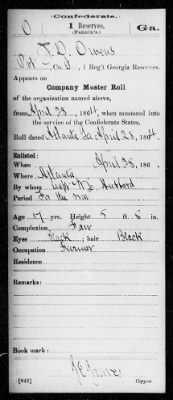 Confederate.
O 1 Reserves. Ga.
(Fannin's.)
T. D. Owens
Pvt, Co. , 1 Reg't Georgia Reserves.
Appears on
Company Muster Roll
of the organization named above,
from April 28, 1864, when mustered into
the service of the Confederate States.
Roll dated Atlanta Ga April 28, 1864.
Enlisted:
When April 28, 186 .
Where Atlanta
By whom Capt Hubbard
Period For the war
Age 17 yrs. Height 5 ft. 5 in.
Complexion Fair
Eyes Black; hair Black
Occupation Farmer
Residence
Remarks:
Book mark:
(642) Copyist.